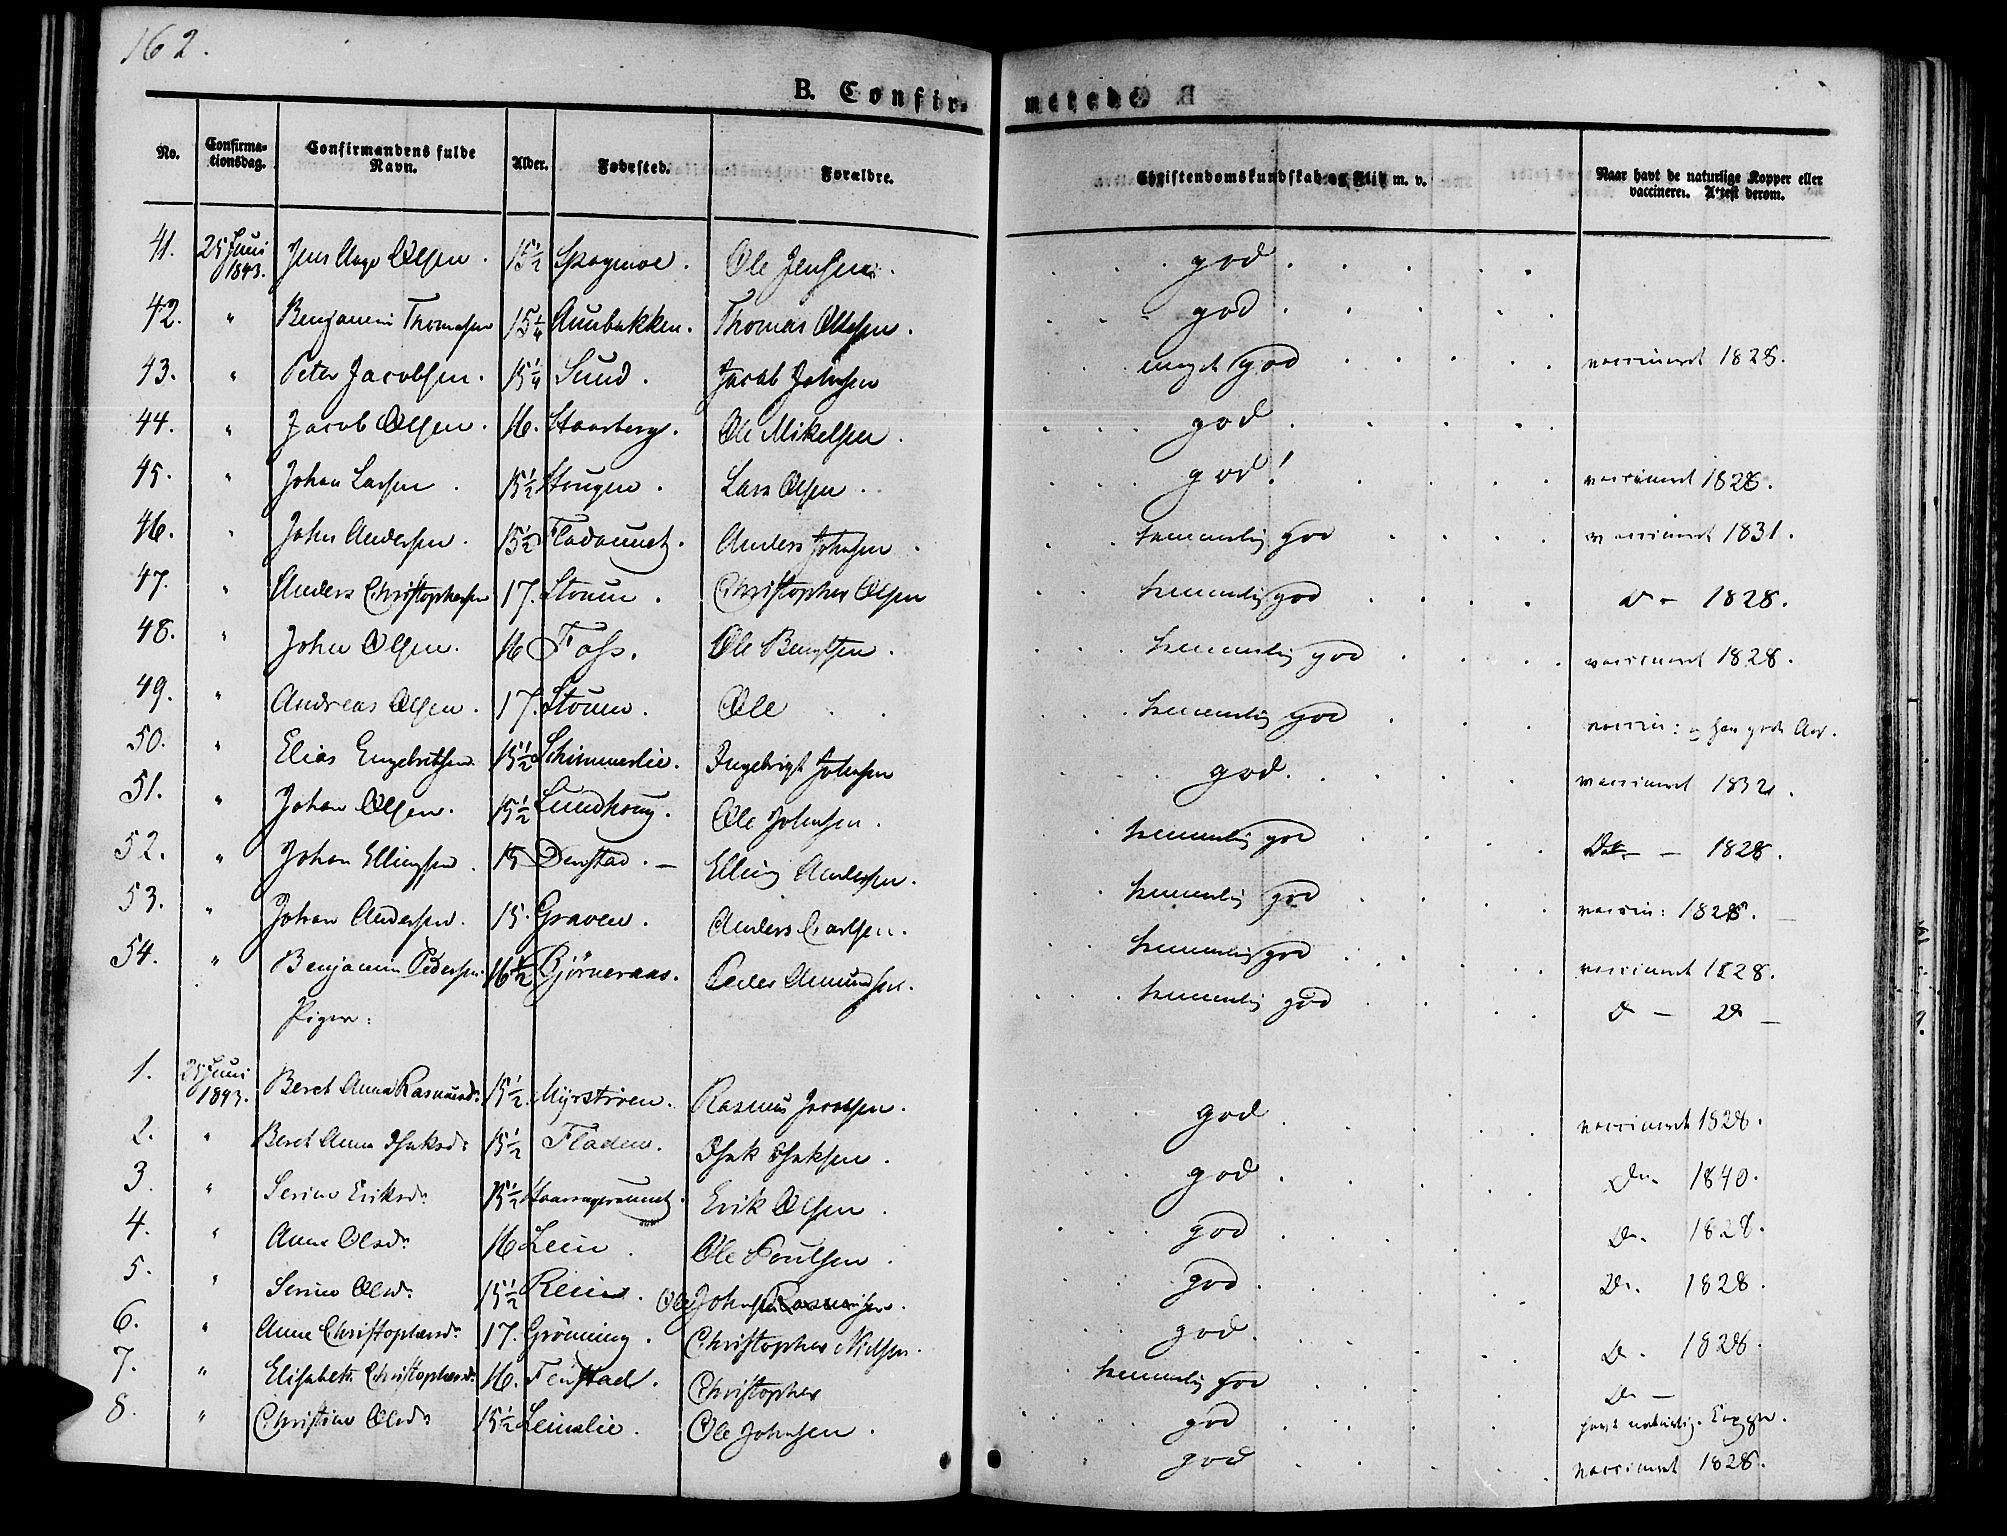 162.
B. Confir-
No. Confirma-tionsdag. Confirmandens fulde Navn. Alder. Fødested. Forældre. Christendomskundskab og Flid m. v. Naar havt de naturlige Kopper eller vaccineret. Attest derom.
41. 25 Juni 1843. Olsen. 15½ Ole Jensen. god
42. " Benjamin Thomesen 15¼ Aunbakken. Thomas Olsen. god
43. " Peter Jacobsen. 15¼ Sund. Jacob Johnsen meget god vaccineret 1828.
44. " Jacob Olsen. 16. Staarberg. Ole Mikelsen. god
45. " Johan Larsen. 15½ Lars Olsen. god! vaccineret 1828.
46. " John Andersen. 15½ Fladaunet. Anders Johnsen. temmelig god vaccineret 1831.
47. " Anders Christophersen 17. Christopher Olsen temmelig god D- 1828.
48. " John Olsen. 16 Foss. Ole Bengtsen. temmelig god vaccineret 1828.
49. " Andreas Olsen. 17. Ole temmelig god vaccin:
50. " Elias Engebretsen 15½ Schimmerlie. Ingebrigt Johnsen god. vaccineret 1832.
51. " Johan Olsen. 15½ Lundhoug. Ole Johnsen. temmelig god Do - 1828.
52. " Johan Ellingsen. 15 Denstad. - Elling Andersen. temmelig god vaccin: 1828.
53. " Johan Andersen. 15. Graven. Anders Carlsen. temmelig god vaccineret 1828.
54. " Benjamin Pedersen. 16½ Bjørneraas. Peder Amundsen. temmelig god D - D -
Piger:
1. 25 Juni 1843. Beret Anna Rasmusd. 15½. Myrstøen. Rasmus Jacobsen. god vaccineret 1828.
2. " Beret Anna Isaksdr 15½ Fladen. Isak Isaksen. god. Do. 1840.
3. " Serine Eriksdr 15½ Erik Olsen. god D. 1828.
4. " Anne Olsdr 16 Lein. Ole Poulsen. god. D. 1828.
5. " Serine Olsdr. 15½ Rein. Ole Johnsen god. D. 1828.
6. " Anne Christophersdr 17. Grønning. Christopher Nielsen. temmelig god D -
7. " Elisabeth Christophersdr. 16. Fenstad. Christopher god havt naturlige Kopper.
8. " Christine Olsdr 15½ Leinslie. Ole Johnsen. god vaccineret 1828.